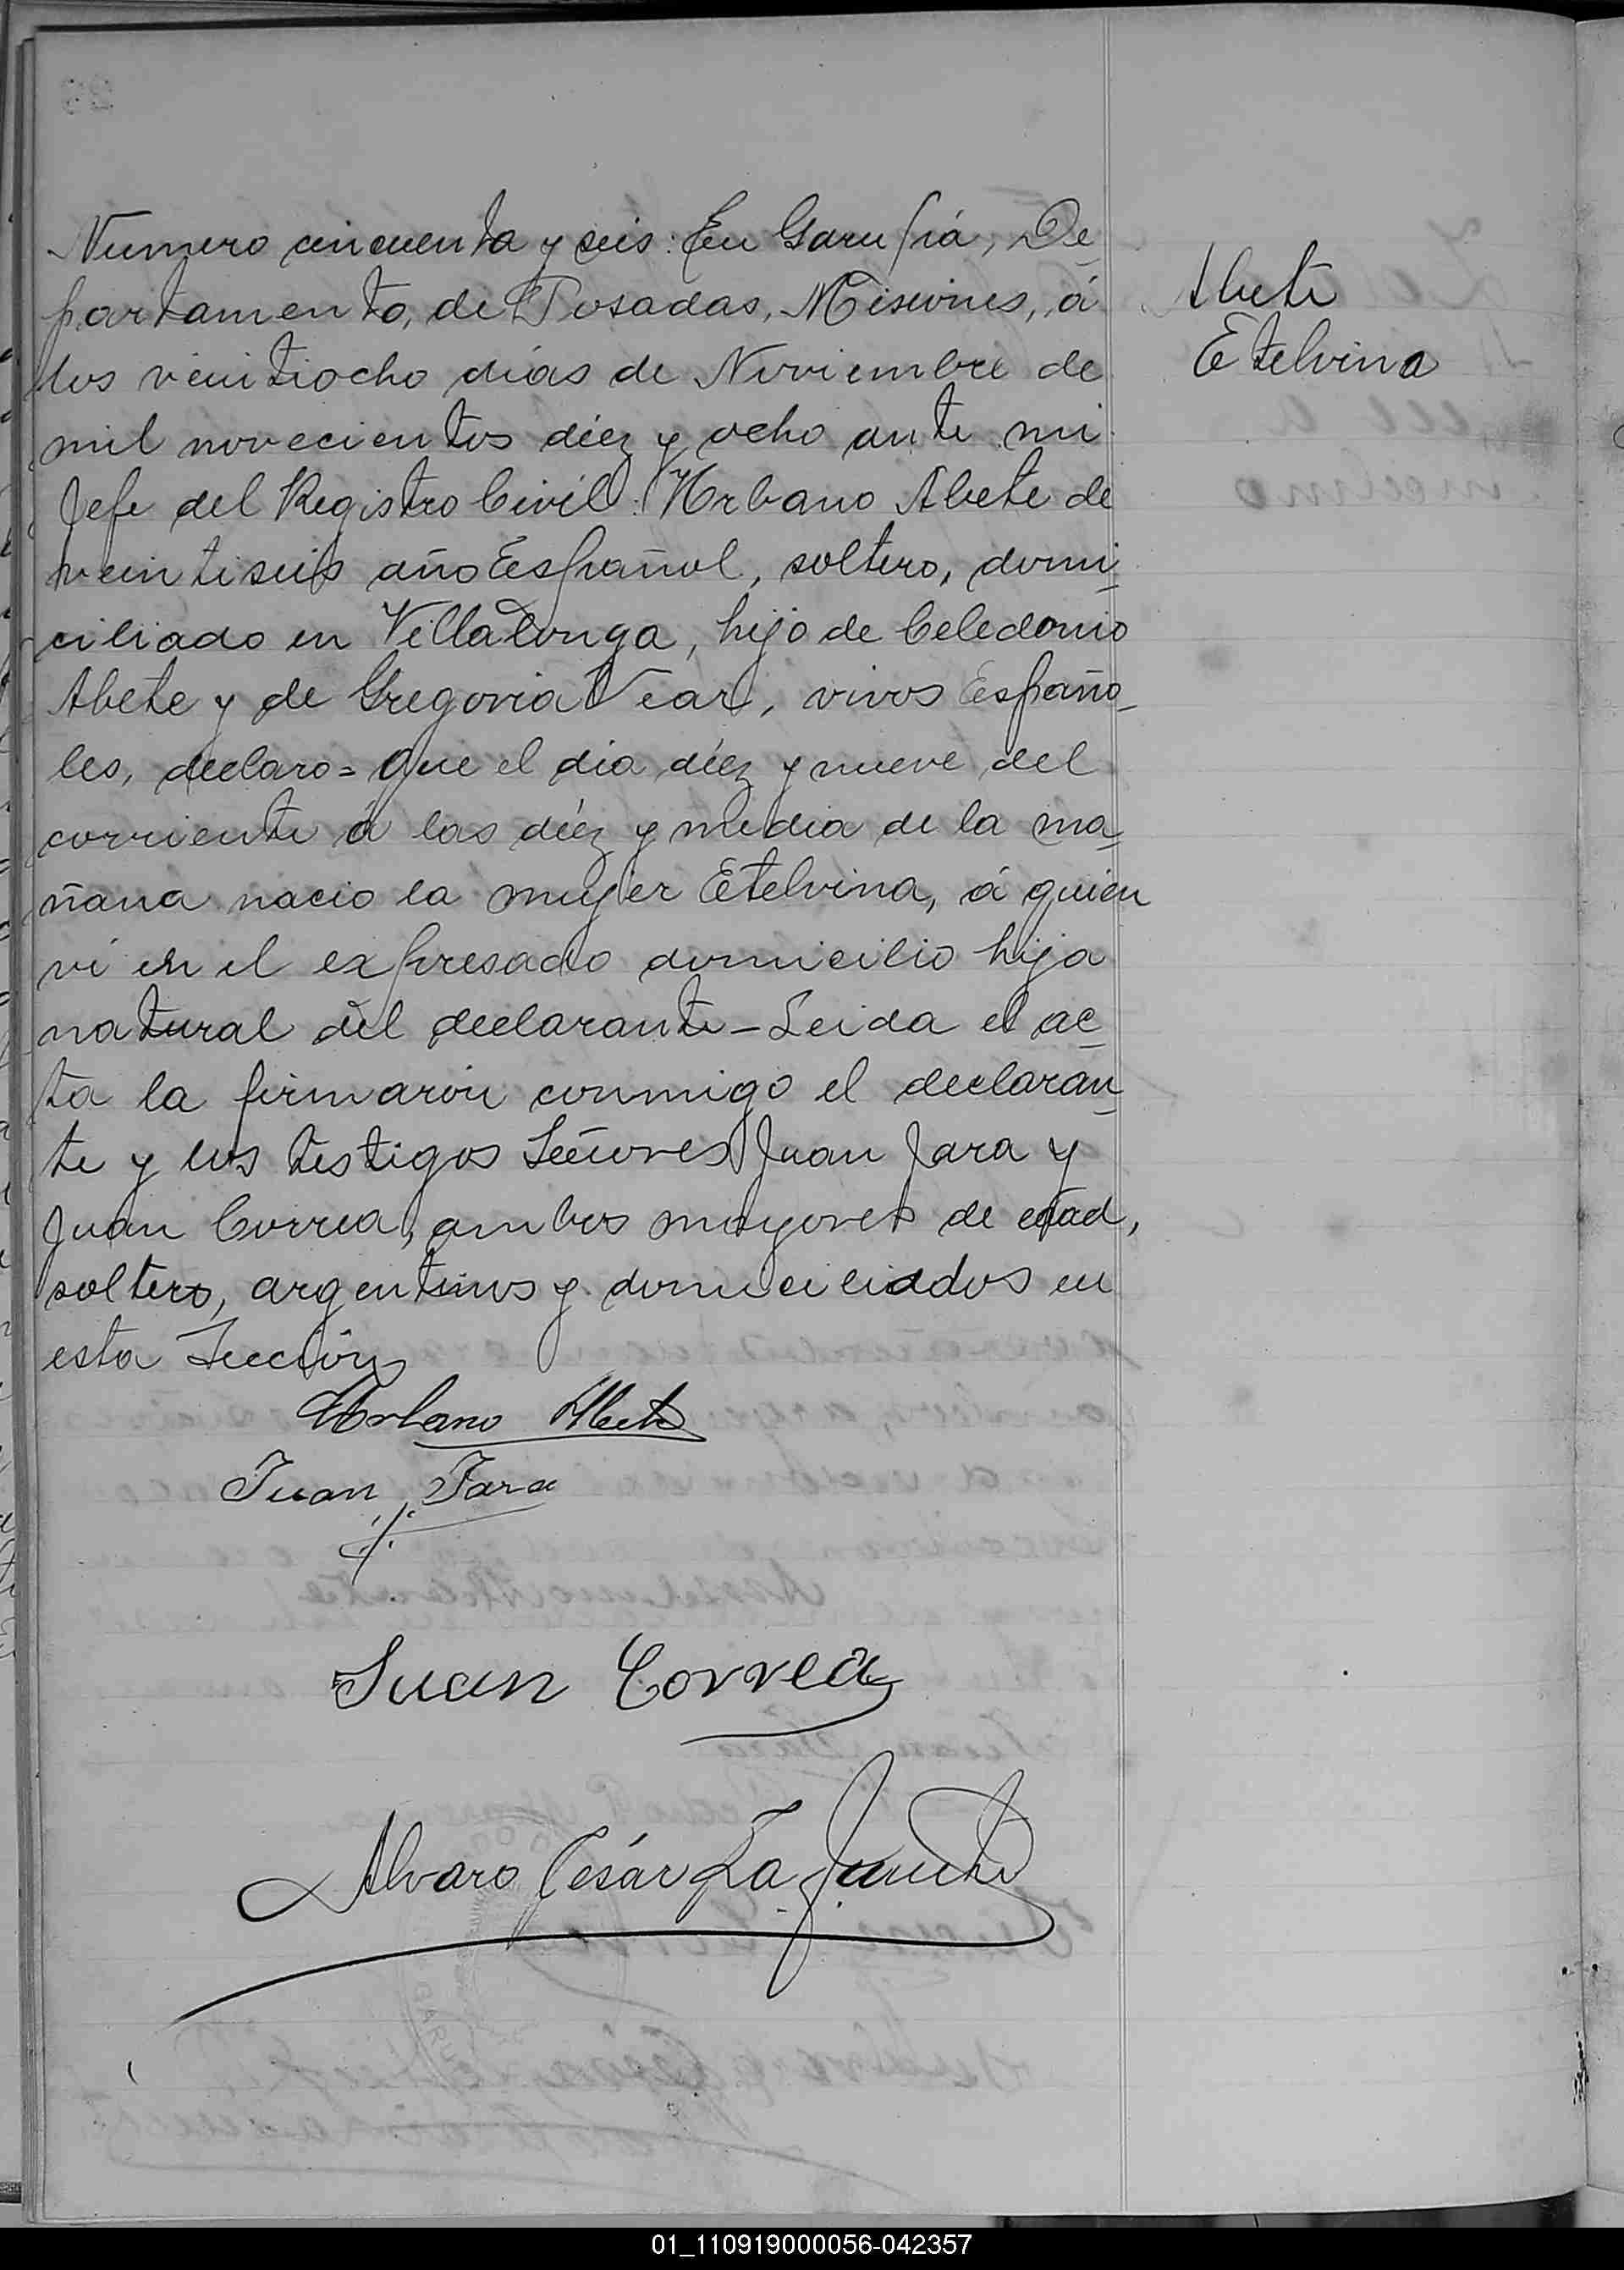 Numero cincuenta y seis: En Garupá, De
partamento, de Posadas, Misiones, á
los veintiocho dias de Noviembre de
mil novecientos diéz y ocho ante mi
Jefe del Registro Civil: Urbano Abete de
veintiseis año Español, soltero, domi
ciliado en Villalonga, hijo de Celedonio
Abete y de Gregoria Vear, vivos Españo
les, declaro = que el dia diéz y nueve del
corriente á las diéz y media de la ma
ñana nacio la mujer Etelvina, á quien
vi en el expresado domicilio hija
natural del declarante - Leida el ac
ta la firmaron conmigo el declaran
te y los testigos Señores Juan Jara y
Juan Correa, ambos mayores de edad,
soltero, argentinos y domiciliados en
esta Sección
Abete
Etelvina
Urbano Abete
Juan Jara
Juan Correa
Alvaro César
01_110919000056-042357